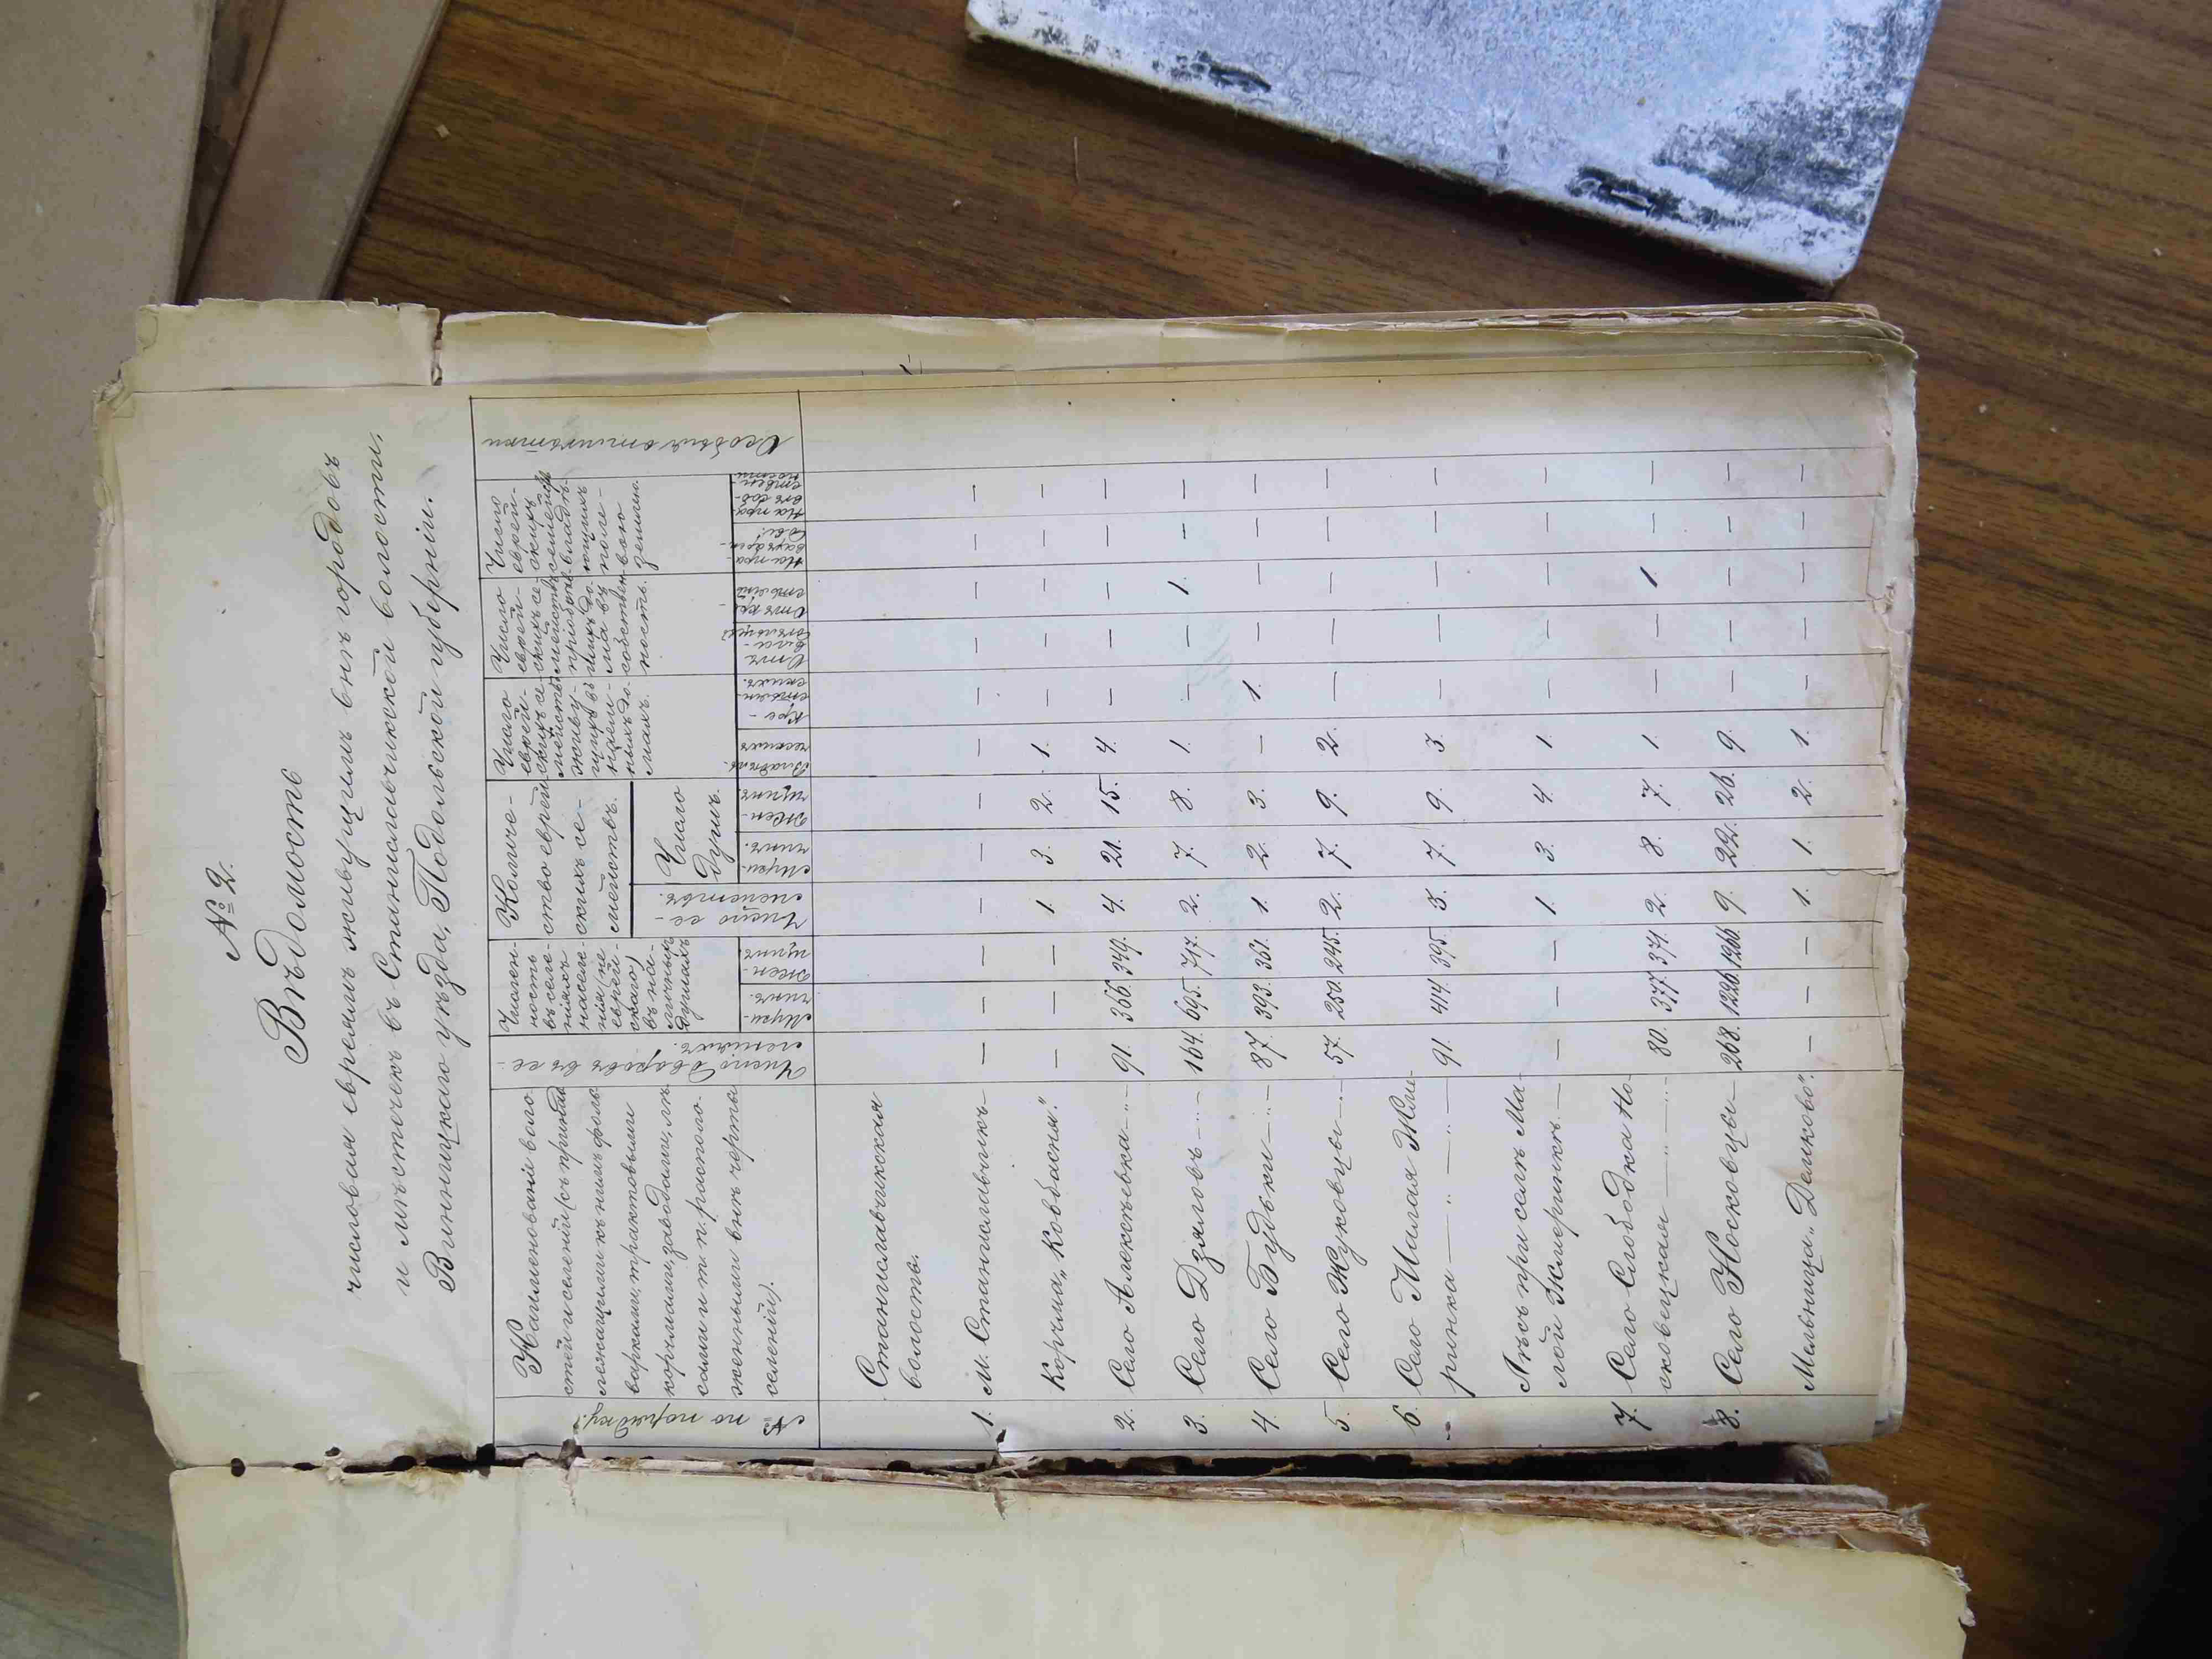 № 2.
Вѣдомость
числовая евреямъ живущимъ внѣ городовъ
и мѣстечекъ въ Станиславчикской волости,
Винницкаго уѣзда, Подольской губерніи.
№ по порядку.
Наименованіе волостей и селеній (съ принад
лежащими къ нимъ фоль
варками, трактовыми
корчмами, заводами, лѣ
сами и т. п. располо-
женными внѣ черты
селеній).
Число дворовъ въ се-
леніяхъ.
Числен-
ность
въ селе
ніяхъ
населе-
нія (не
еврей-
скаго)
въ на-
личныхъ
душахъ
Муж-
чинъ.
Жен-
щинъ.
Количе-
ство еврей
скихъ се-
мействъ.
Число се-
мействъ.
Число
душъ.
Муж-
чинъ.
Жен-
щинъ.
Число
еврей-
скихъ се
мействъ
живу-
щихъ въ
наем-
ныхъ до-
махъ.
Владѣль-
ческихъ
Кре-
стьян-
скихъ.
Число
еврей-
скихъ се-
мействъ
пріобрѣв
шихъ до-
ма въ
собствен
ность.
Отъ
вла-
дѣльцевъ
Отъ кре-
стьянъ
Число
еврей-
скихъ
семействъ
владѣ-
ющихъ
поле-
вою
землею.
На пра-
вахъ арен-
ды.
На пра-
вѣ соб-
ствен
ности
Особыя отмѣтки
Станиславчикская
волость.
1. М. Станиславчикъ — — — — — — — — — — — — —
Корчма „Ковбасня“. — — — 1. 3. 2. 1. — — — — —
2. Село Алексѣевка 91. 366. 349. 4. 21. 15. 4. — — — — —
3. Село Дзяловъ 164. 695. 717. 2. 7. 8. 1. — — 1. — —
4. Село Будьки 87. 393. 361. 1. 2. 3. — 1. — — — —
5. Село Жуковцы 57. 250. 245. 2. 7. 9. 2. — — — — —
6. Село Малая Жме-
ринка 91. 414. 395. 3. 7. 9. 3. — — — — —
Лѣсъ при селѣ Ма-
лой Жмеринкѣ — — — 1. 3. 4. 1. — — — — —
7. Село Слободка Но-
сковецкая 80. 377. 371. 2. 8. 7. 1. — — 1. — —
8. Село Носковцы 268. 1226. 1266. 9. 22. 26. 9. — — — — —
Мельница „Демково“. — — — 1. 1. 2. 1. — — — — —